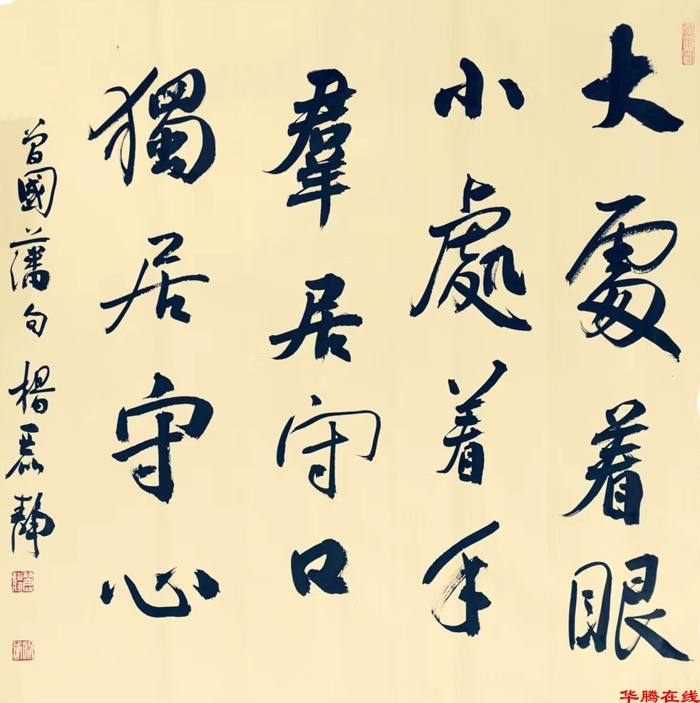 大處着眼
小處着手
羣居守口
獨居守心
曾國藩句 楊 静
华腾在线